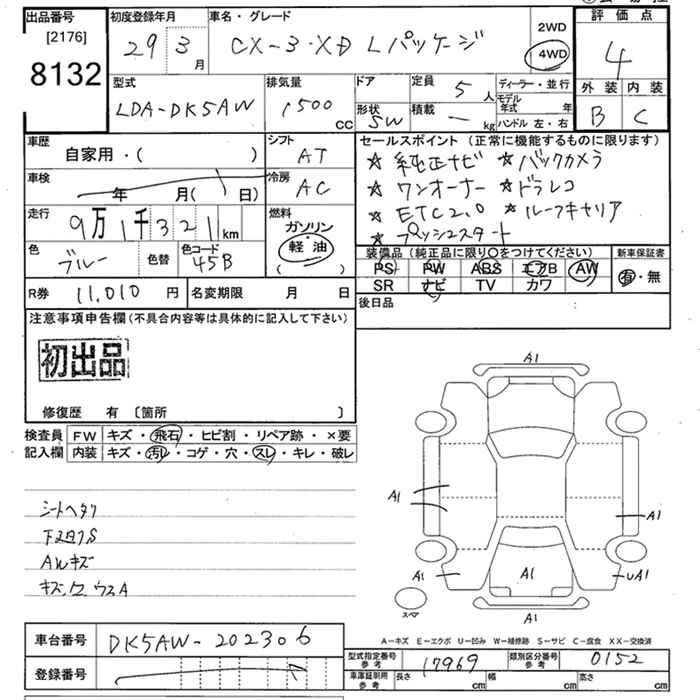 出品番号 初度登録年月 車名・グレード 2WD 評価点
[2176] 29 3月 CX-3 XD Lパッケージ 4WD 4
8132
型式 排気量 ドア 定員 5人 ディーラー・並行 外装 内装
LDA-DK5AW 1500CC 形状 SW 積載 ― kg モデル年式 年 B C
ハンドル 左・右
車歴 シフト セールスポイント (正常に機能するものに限ります)
自家用・( ) AT ★純正ナビ ★バックカメラ
車検 年 月( 日) 冷房 AC ★ワンオーナー ★ドラレコ
走行 9万1千321km 燃料 ガソリン ★ETC2.0 ★ルーフキャリア
軽油 ★プッシュスタート
色 ブルー 色替 色コード 45B ( ) 装備品 (純正品に限り○をつけてください) 新車保証書
PS PW ABS エアB AW 有・無
SR ナビ TV カワ
R券 11,010円 名変期限 月 日 後日品
注意事項申告欄(不具合内容等は具体的に記入して下さい)
初出品
修復歴 有 〔箇所 〕
検査員 FW キズ・飛石・ヒビ割・リペア跡・×要
記入欄 内装 キズ・汚レ・コゲ・穴・スレ・キレ・破レ
シートヘタリ
下回りS
AWキズ
A1
A1
A1
A1
A1
UA1
A1
スペア
A-キズ E-エクボ U-凹み W-補修跡 S-サビ C-腐食 XX-交換済
車台番号 DK5AW-202306
登録番号
型式指定番号 参考 17969 類別区分番号 参考 0152
車庫証明用 参考 長さ cm 幅 cm 高さ cm